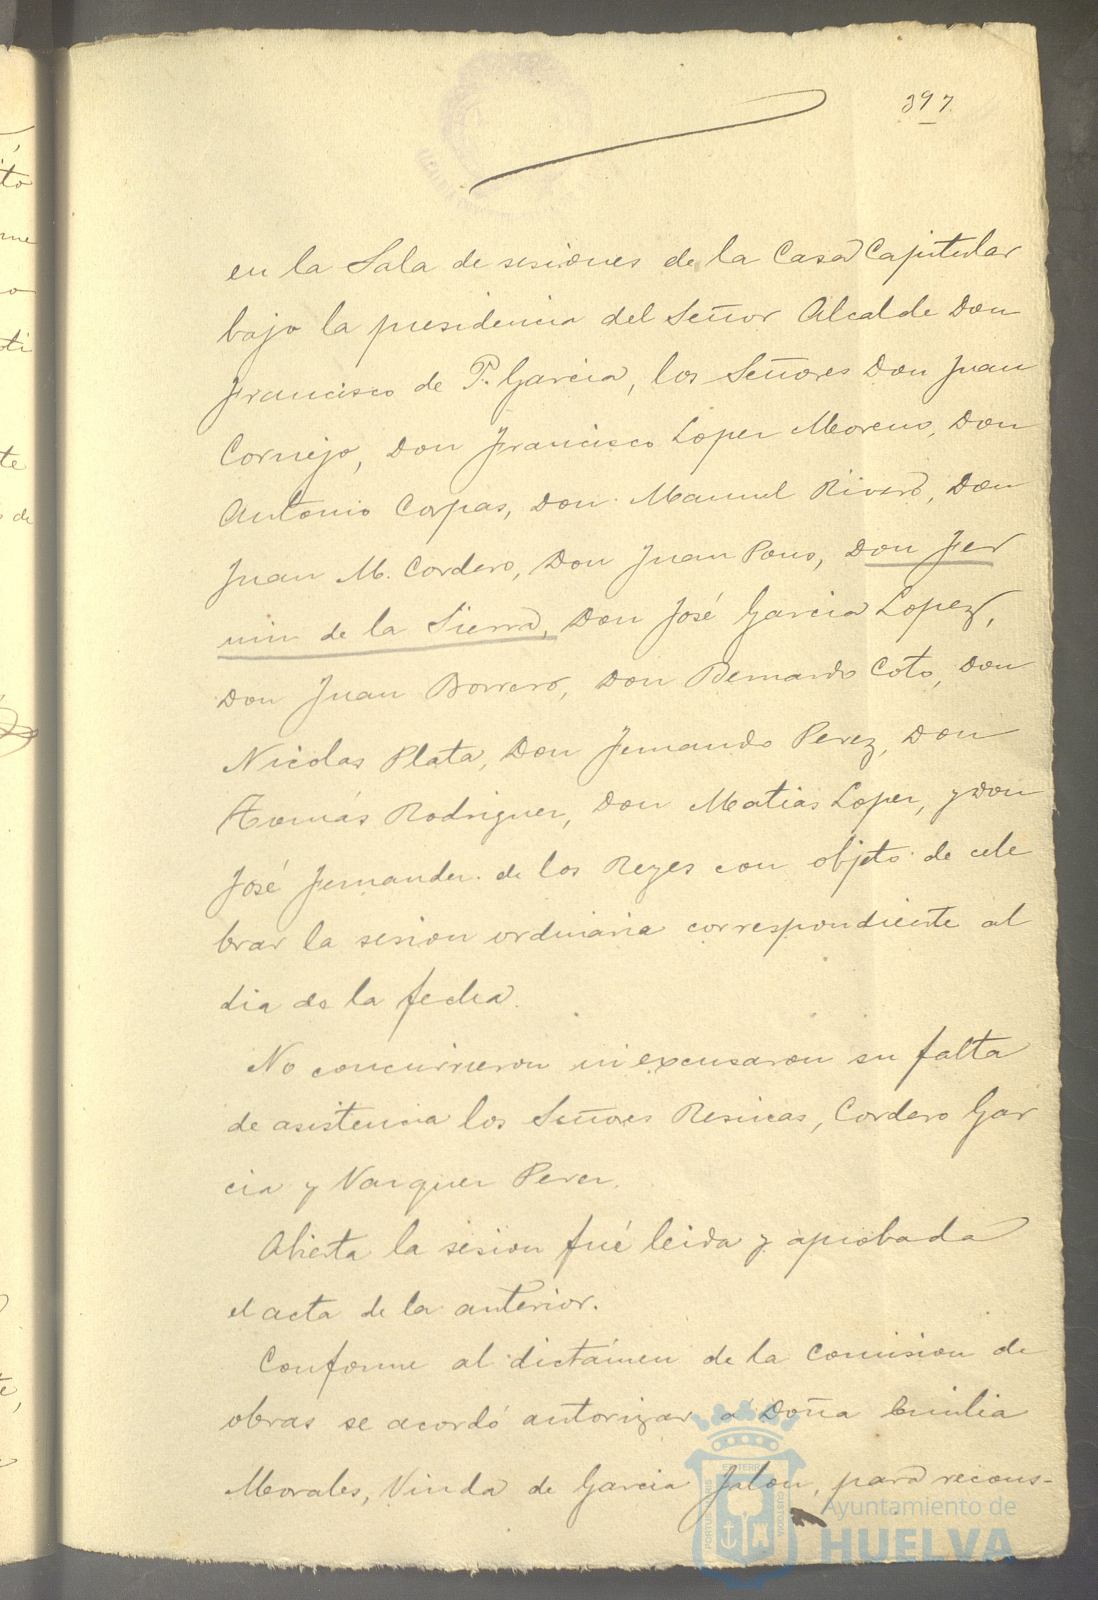 397
en la Sala de sesiones de la Casa Capitular
bajo la presidencia del Señor Alcalde Don
Francisco de P. Garcia, los Señores Don Juan
Cornejo, Don Francisco Lopez Moreno, Don
Antonio Corpas, Don Manuel Rivero, Don
Juan M. Cordero, Don Juan Pons, Don Fer
min de la Sierra, Don José Garcia Lopez,
Don Juan Borrero, Don Bernardo Coto, Don
Nicolas Plata, Don Fernando Perez, Don
Tomás Rodriguez, Don Matias Lopez, y Don
José Fernandez de los Reyes con objeto de cele
brar la sesion ordinaria correspondiente al
dia de la fecha.
No concurrieron ni excusaron su falta
de asistencia los Señores Resinas, Cordero Gar
cia y Vazquez Perez.
Abierta la sesion fué leida y aprobada
el acta de la anterior.
Conforme al dictámen de la Comision de
obras se acordó autorizar a Doña Emilia
Morales, Viuda de Garcia Jalon, para recons-
Ayuntamiento de
HUELVA